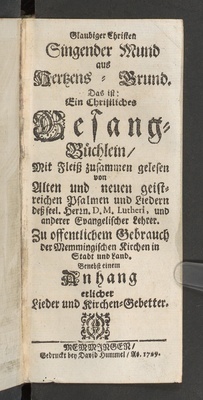 Glaubiger Christen
Singender Mund
aus
Hertzens-Grund.
Das ist:
Ein Christliches
Gesang-
Büchlein/
Mit Fleiß zusammen gelesen
von
Alten und neuen geist-
reichen Psalmen und Liedern
deß seel. Herrn, D. M. Lutheri, und
anderer Evangelischer Lehrer.
Zu offentlichem Gebrauch
der Memmingischen Kirchen in
Stadt und Land.
Benebst einem
Anhang
etlicher
Lieder und Kirchen-Gebetter.
MEMMINGEN/
Gedruckt bey David Hummel/ Ao. 1729.